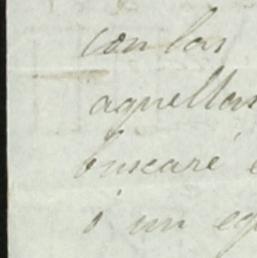 con las
aquellas
buscaré
ó un